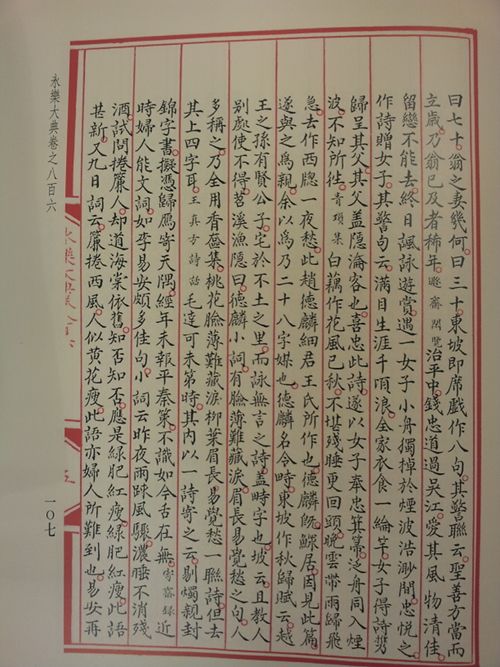 曰七十翁之妻幾何曰三十東坡即席戲作八句其警聯云聖善方當而
立歲乃翁已及者稀年遯齋閑覽治平中錢忠道過吳江愛其風物清佳
留戀不能去終日諷詠遊賞遇一女子小舟獨棹於煙波浩渺間忠悅之
作詩贈女子其警句云滿目生涯千頃浪全家衣食一綸竿女子得詩携
歸呈其父其父蓋隱淪客也喜忠此詩遂以女子奉忠箕箒泛舟同入煙
波不知所往青瑣集白藕作花風已秋不堪殘睡更回頭晚雲帶雨歸飛
急去作西牎一夜愁此趙德麟細君王氏所作也德麟既鰥居因見此篇
遂與之為親余以為乃二十八字媒也德麟名令畤東坡作秋歸賦云越
王之孫有賢公子宅於不土之里而詠無言之詩蓋畤字也坡云且教人
別處使不得苕溪漁隱曰德麟小詞有臉薄難藏淚眉長易覺愁之句人
多稱之乃全用香奩集桃花臉薄難藏淚柳葉眉長易覺愁一聯詩但去
其上四字耳王直方詩話毛達可未第時其內以一詩寄之云剔燭親封
錦字書擬憑歸鴈寄天隅經年未報平秦策不識如今舌在無齋錄近
時婦人能文詞如李易安頗多佳句小詞云昨夜雨踈風驟濃睡不消殘
酒試問捲簾人却道海棠依舊知否知否應是綠肥紅瘦綠肥紅瘦此語
甚新又九日詞云簾捲西風人似黃花瘦此語亦婦人所難到也易安再
永樂大典卷八百六
五
永樂大典卷之八百六
一〇七